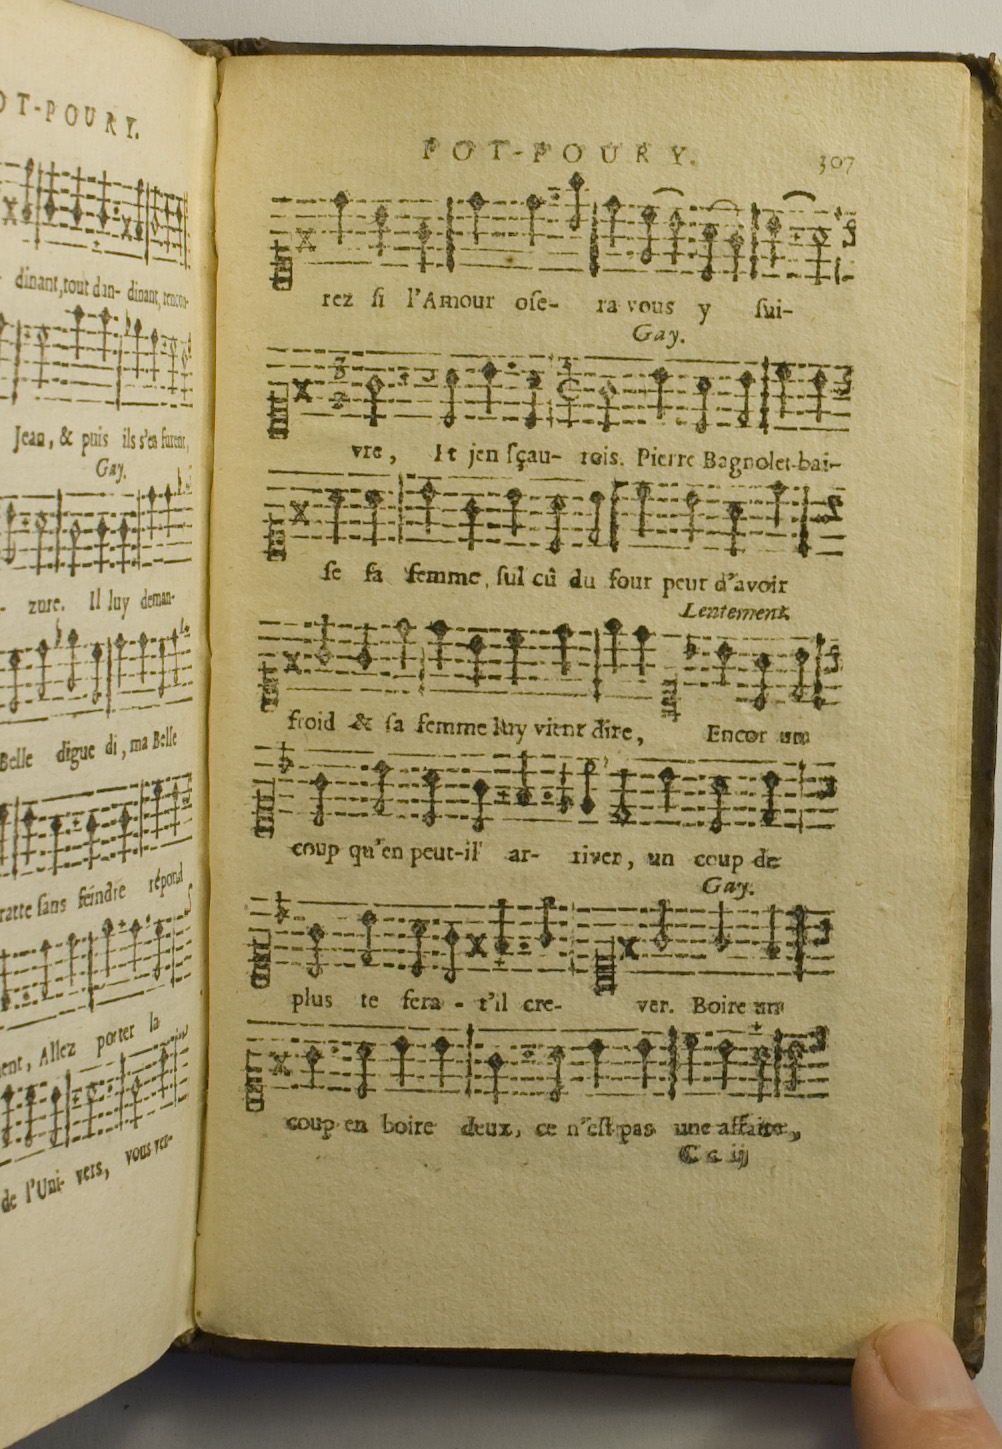 OT-POURY.
dinant, tout dan- dinant, rencon-
Jean, & puis ils s'en furent,
Gay.
- zure. Il luy deman-
Belle digue di, ma Belle
ratte ſans feindre répond
ent, Allez porter la
de l'Uni- vers, vous ver-
POT-POURY. 307
rez ſi l'Amour oſe- ra vous y ſui-
Gay.
vre, Et j'en ſçau- rois. Pierre Bagnolet bai-
ſe ſa femme, ſul cû du four peur d'avoir
Lentement.
froid & ſa femme luy vient dire, Encor un
coup qu'en peut-il ar- river, un coup de
Gay.
plus te fera - t'il cre- ver. Boire un
coup en boire deux, ce n'eſt pas une affaire,
C c iij